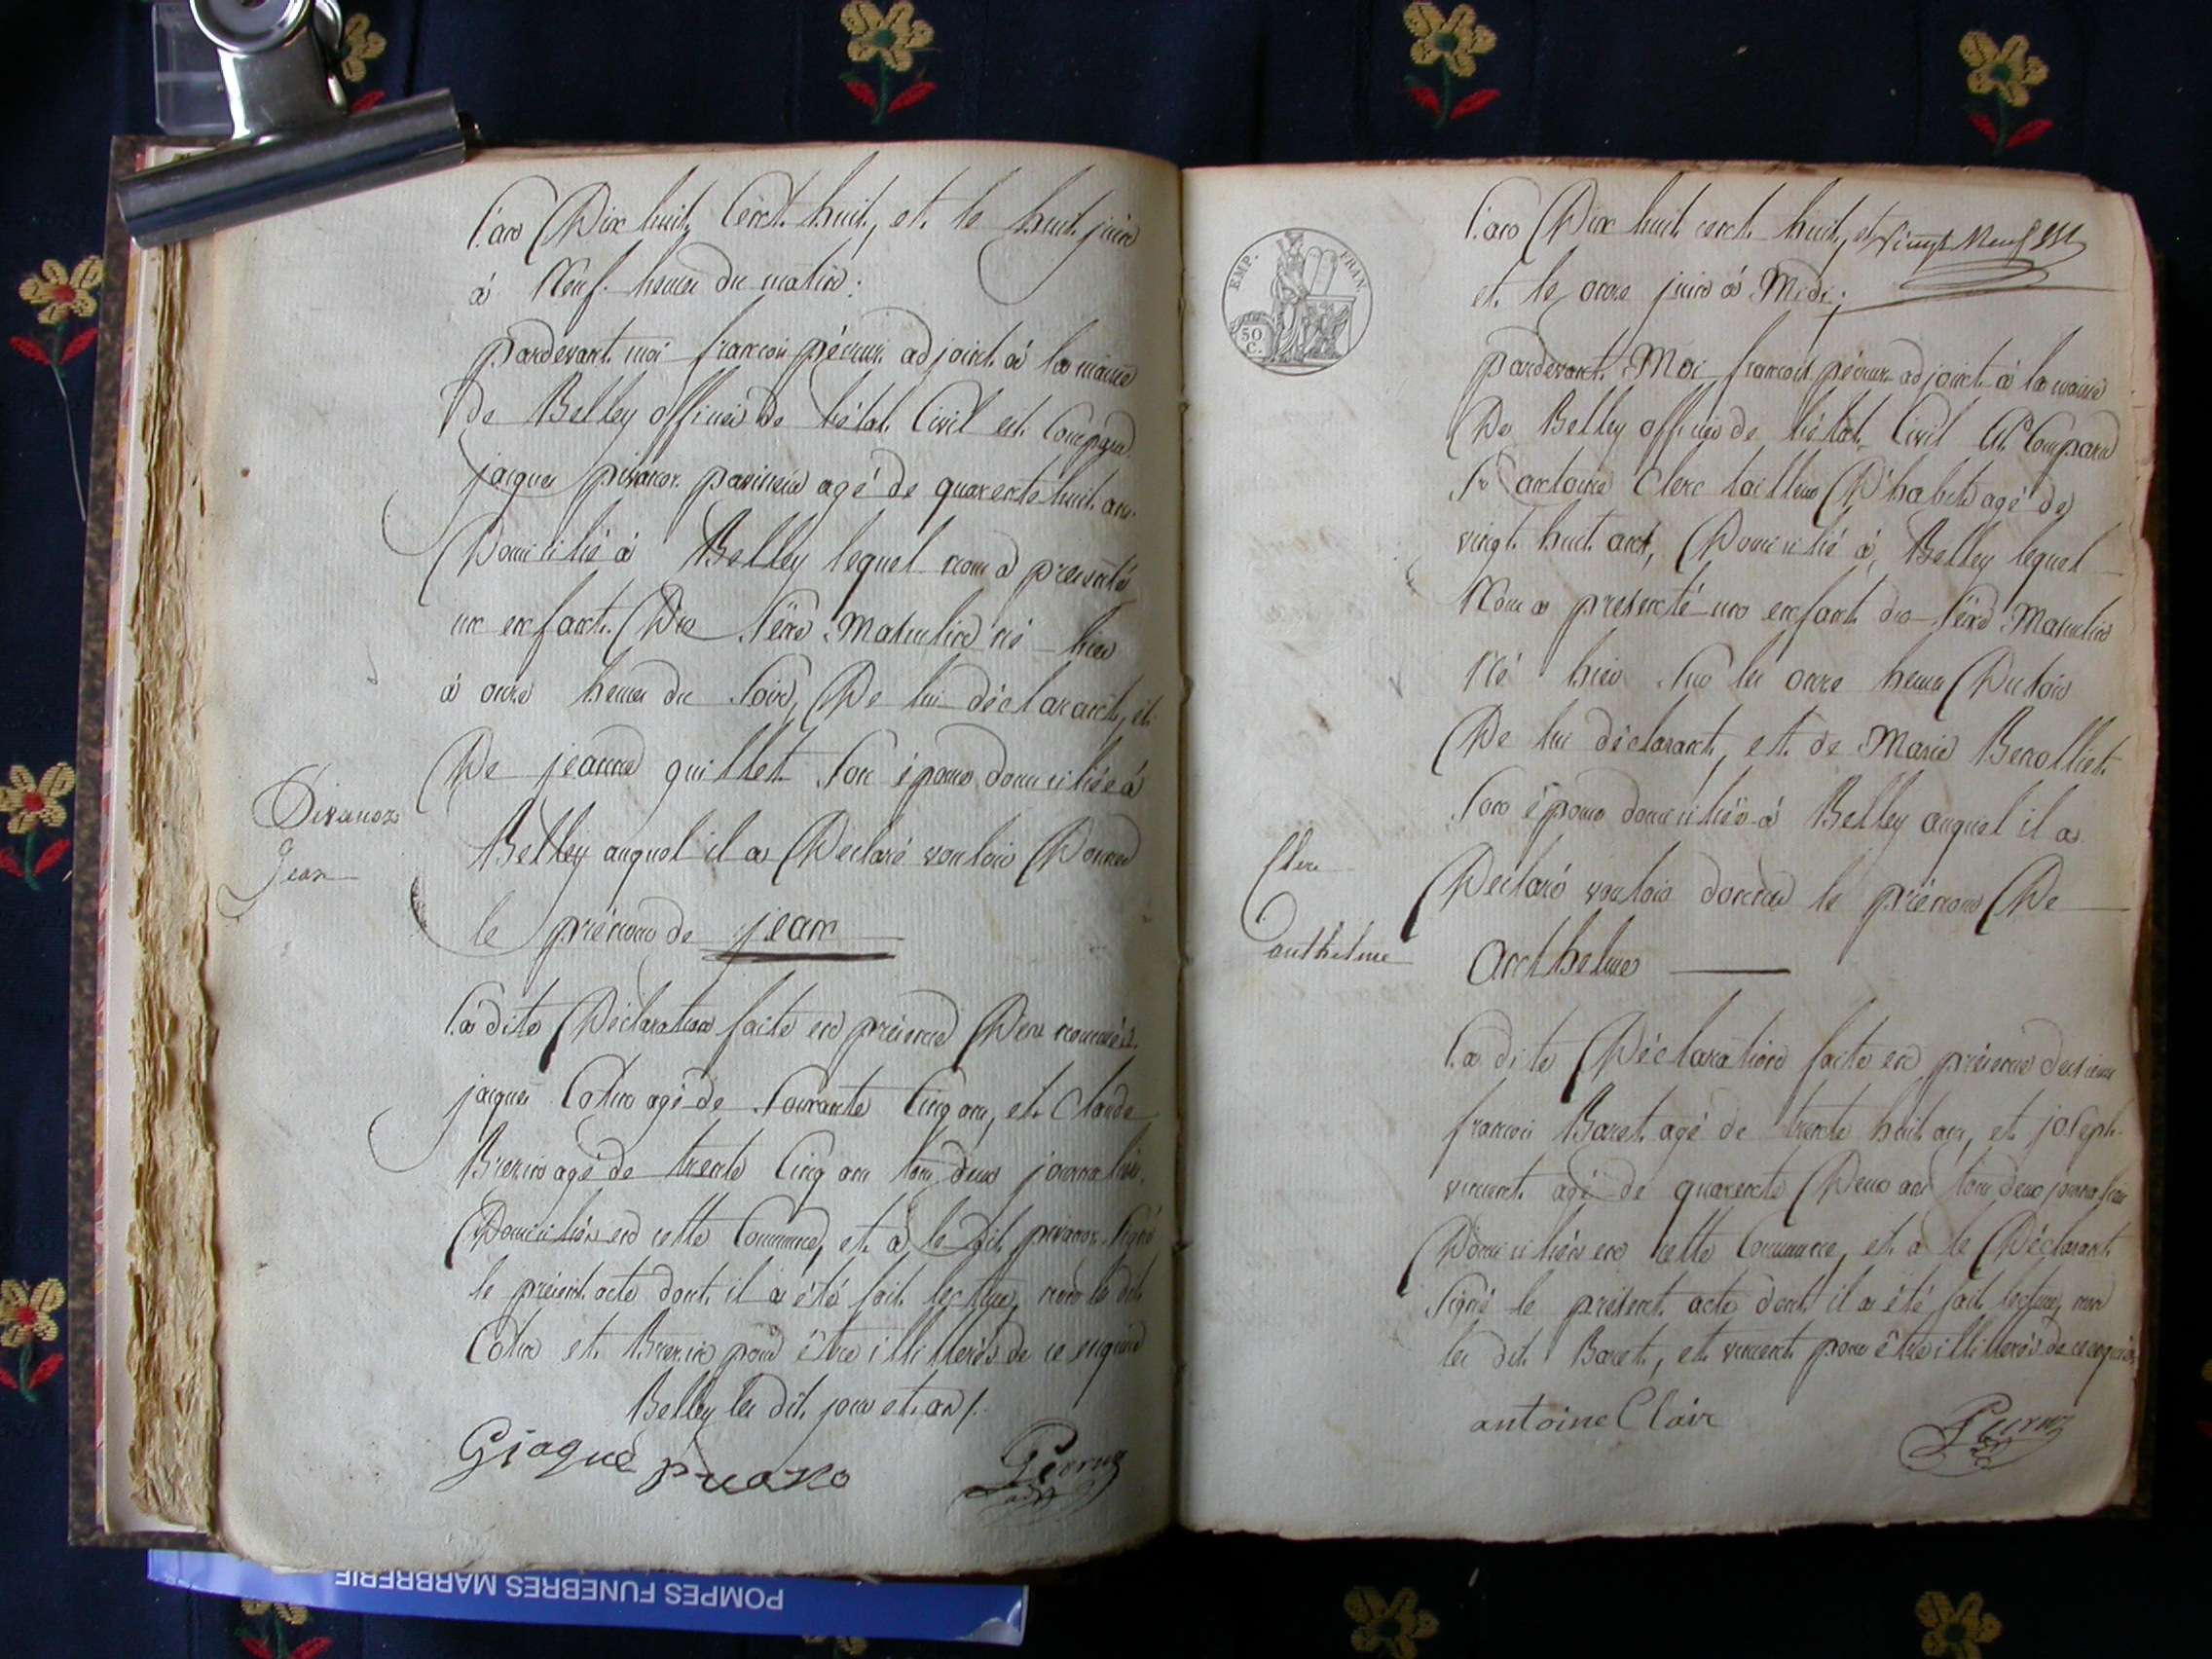 L'an Dix huit Cent huit, et le huit juin
à Neuf heures du matin:
pardevant moi françois adjoint à la mairie
De Belley officier de l'état Civil est Comparu
jacques pivanoz agé de quarente huit ans
Domicilié à Belley lequel nous a presenté
un enfant Du Sexe Masculin né hier
à onze heures du Soir, De lui déclarant, et
De jeanne guillet Son épouse domiciliée à
Belley auquel il a Declaré vouloir Donner
le prénom de jean
Pivanoz
Jean
La dite Déclaration faite en présence Des nommés
jacques Cotin agé de Soixante Cinq ans, et Claude
agé de trente Cinq ans tous deux journaliers
Domiciliés en cette Commune, et a le dit pivanoz Signé
le présent acte dont il a été fait lecture, non les dit
Cotin et pour être illitterés de ce enquis
Belley les dit jour et an /.
Giaque
L'an Dix huit cent huit, et Vingt Neuf
et le onze juin à Midi;
pardevant Moi françois adjoint à la mairie
De Belley officier de l'état Civil est Comparu
Sr antoine Clerc tailleur D'habits agé de
vingt huit ans, Domicilié à Belley lequel
Nous a presenté un enfant du Sexe Masculin
Né hier Sur les onze heures Du Soir
De lui déclarant, et de Marie Benolliet
Son épouse domiciliée à Belley auquel il a
Declaré vouloir donner le prénom De
Anthelme
Clerc
anthelme
EMP. FRAN.
50 C.
La dite Déclaration faite en présence des sieurs
françois Boret agé de trente huit ans, et joseph
vincent agé de quarente Deux ans tous deux journaliers
Domiciliés en cette Commune, et a le Déclarant
Signé le présent acte dont il a été fait lecture, non
les dit Boret, et vincent pour être illitterés de ce enquis
antoine Clair
POMPES FUNEBRES MARBRERIE